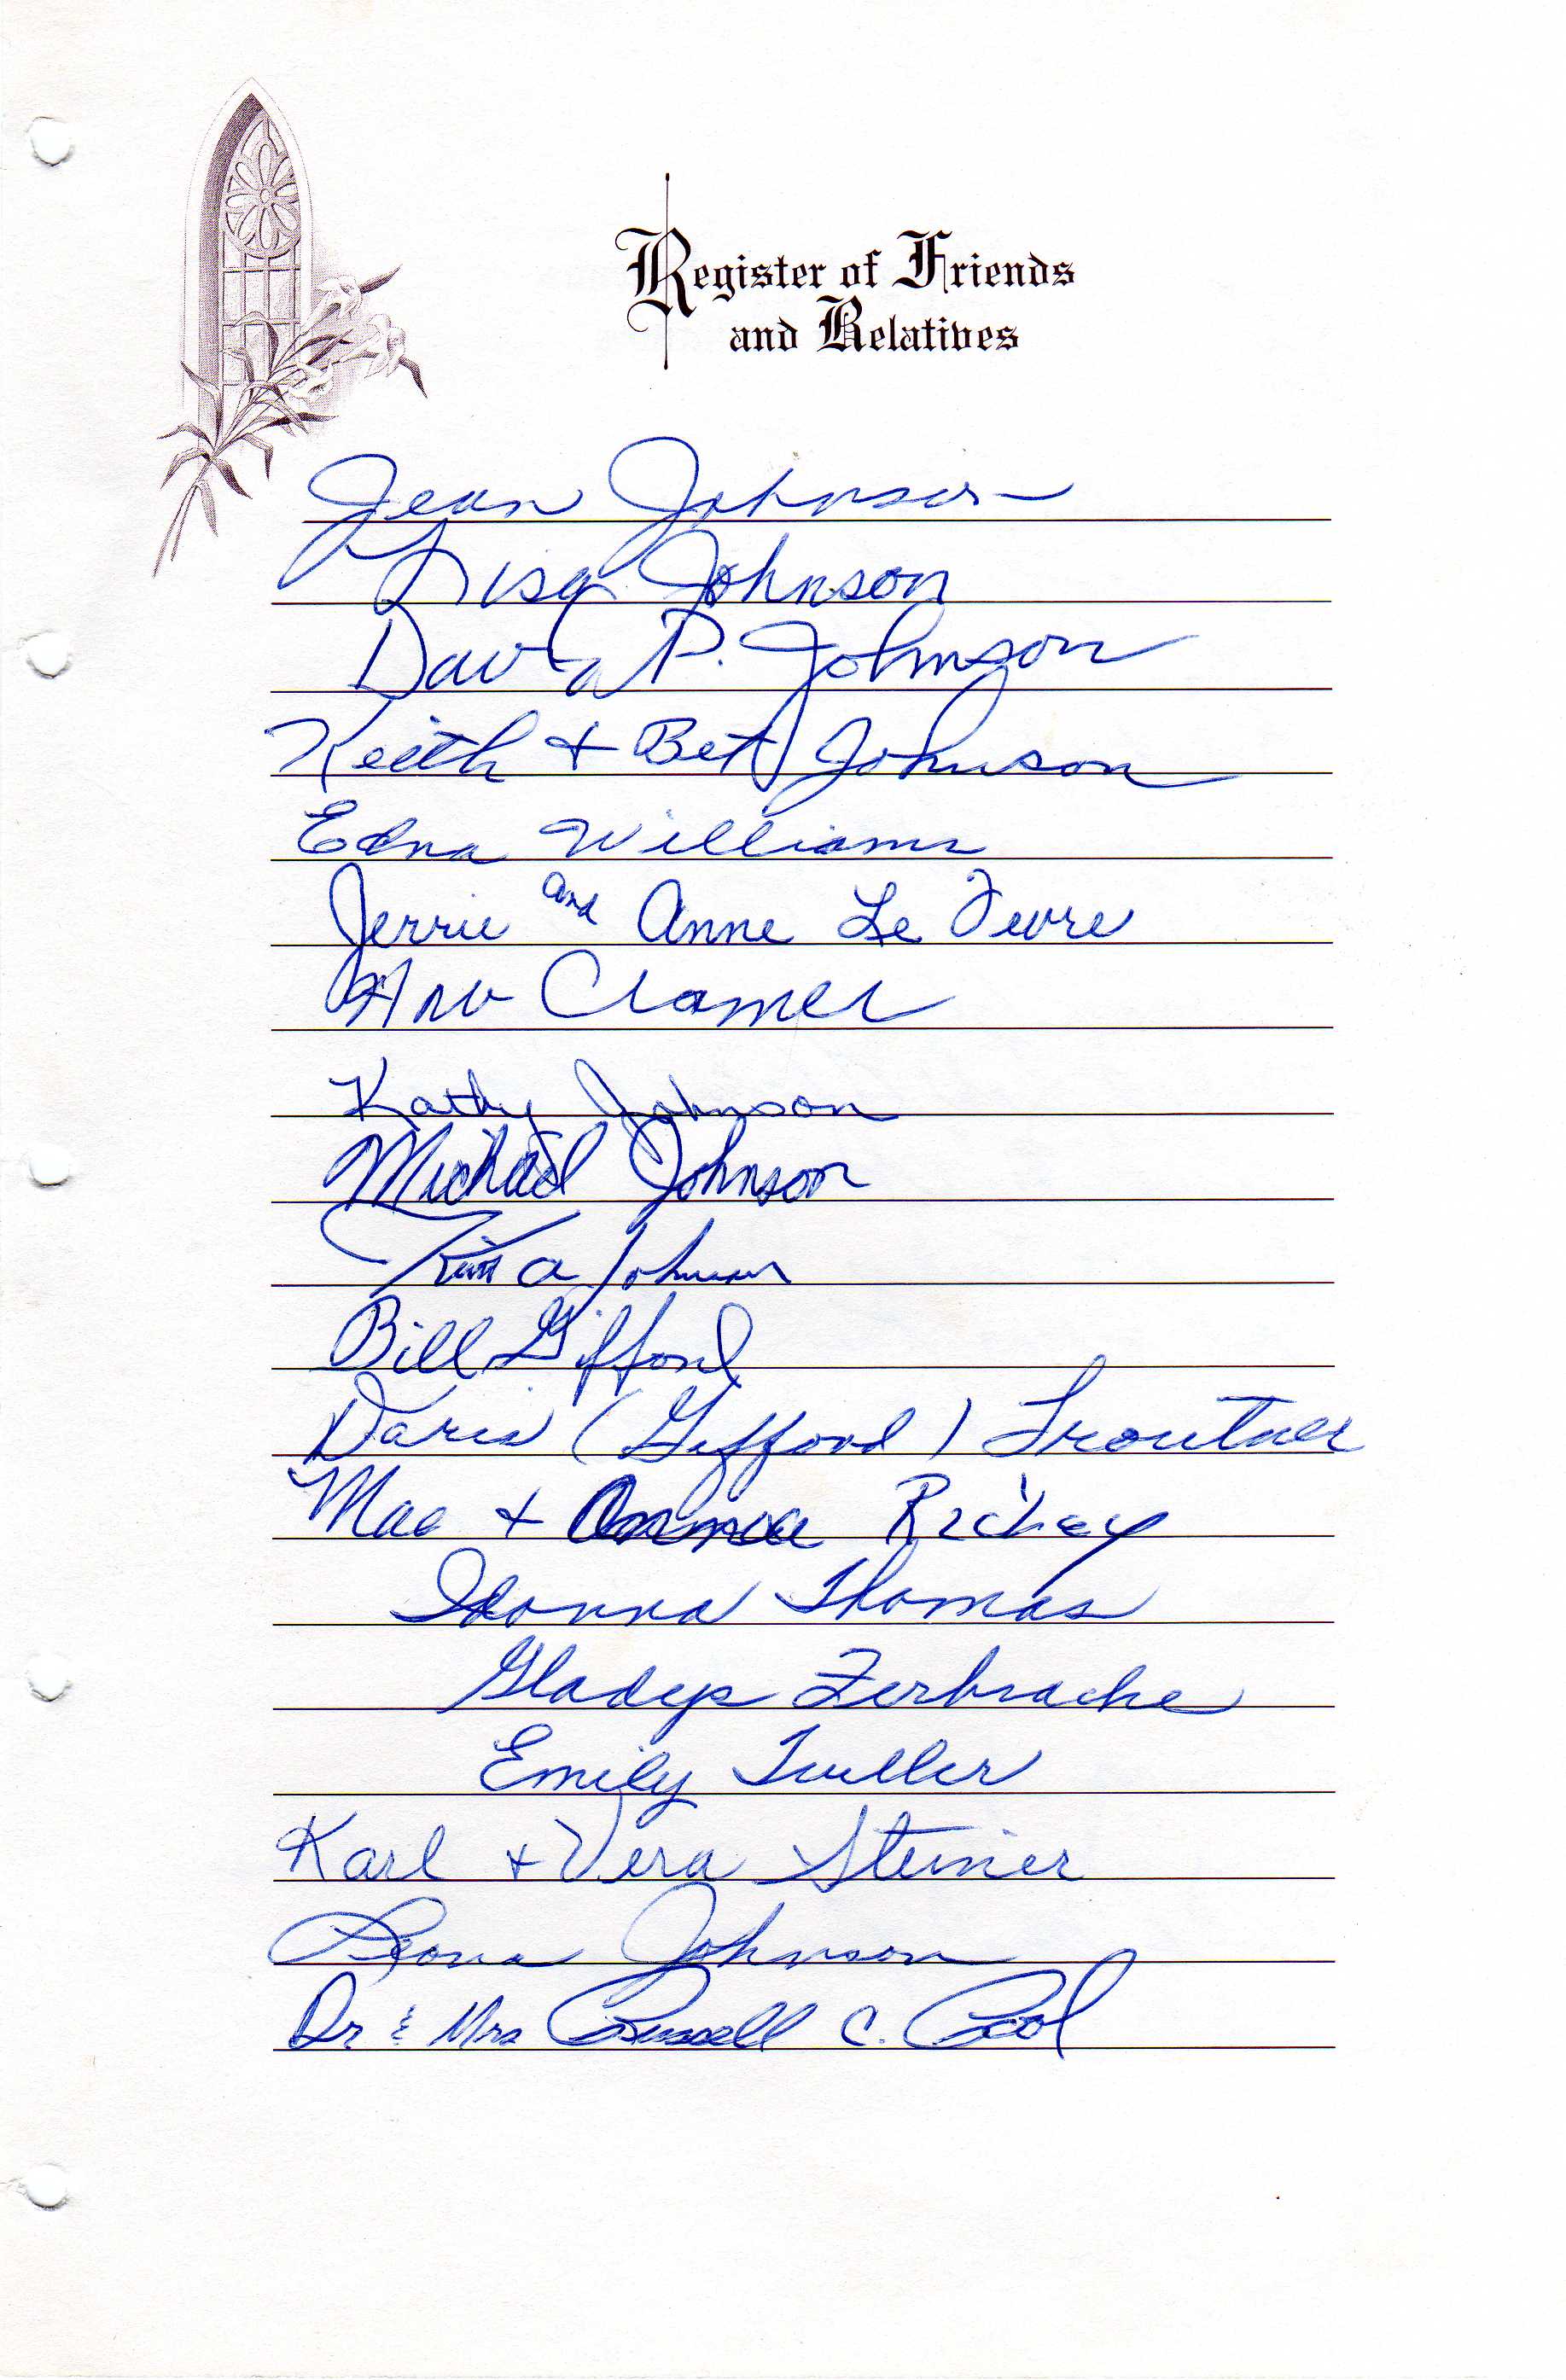 Register of Friends
and Relatives
Jean Johnson
Lisa Johnson
David P. Johnson
Keith + Bet Johnson
Edna Williams
Jerrie and Anne Le Fevre
Arv Cramer
Kathy Johnson
Michael Johnson
a Johnson
Bill Gifford
Doris (Gifford) Troutner
Mac + Richey
Donna Thomas
Gladys Zerbrache
Emily Tuller
Karl + Vera Steiner
Leona Johnson
Dr & Mrs Russell C. Cool